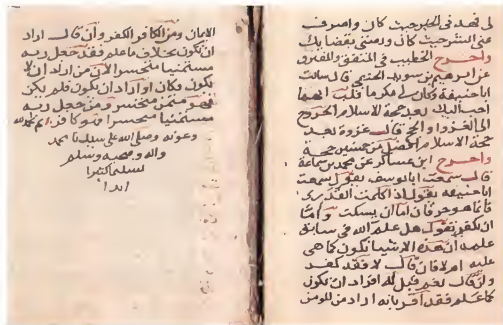 لى فيه فى الخير حيث كان واصرف
عنى الشر حيث كان ورضنى بقضايك
واخرج الخطيب فى المتفق والمفترق
عن ابرهيم بن سويد الحنفى قال سالت
ابا حنيفة وكان لى مكرما قلت ايهما
احب اليك بعد حجة الاسلام الخروج
الى الغزو او الحج قال غزوة بعد
حجة الاسلام افضل من خمسين حجة
واخرج ابن عساكر عن محمد بن سماعة
قال سمعت ابا يوسف يقول سمعت
ابا حنيفة يقول اذا كلمت القدرى
فانما هو حرفان اما ان يسكت واما
ان يكفر يقول هل علم الله فى سابق
علمه ان هذه الاشيا تكون كما هى
عليه ام لا فان قال لا فقد كفر
وان قال نعم قيل له افاراد ان تكون
كما علم فقد اقر بانه اراد من المومن
الايمان ومن الكافر الكفر وان قال اراد
ان يكون بخلاف ما علم فقد جعل ربه
متمنيا متحسرا لان من اراد ان لا
يكون وكان او اراد ان يكون فلم يكن
فهو متمن متحسر ومن جعل ربه
متمنيا متحسرا فهو كافر تم بحمد الله
وعونه وصلى الله على سيدنا محمد
واله وصحبه وسلم
تسليما كثيرا
ابدا